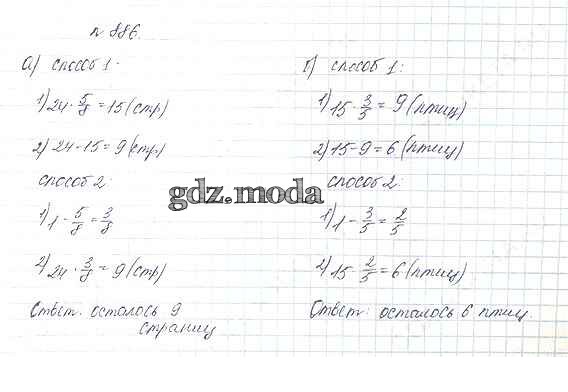 № 886.
а) способ 1.
1) 24 · 5/8 = 15 (стр)
2) 24 - 15 = 9 (стр)
способ 2.
1) 1 - 5/8 = 3/8
2) 24 · 3/8 = 9 (стр)
Ответ. осталось 9
страниц
б) способ 1:
1) 15 · 3/5 = 9 (птиц)
2) 15 - 9 = 6 (птиц)
способ 2.
1) 1 - 3/5 = 2/5
2) 15 · 2/5 = 6 (птиц)
Ответ: осталось 6 птиц.
gdz.moda